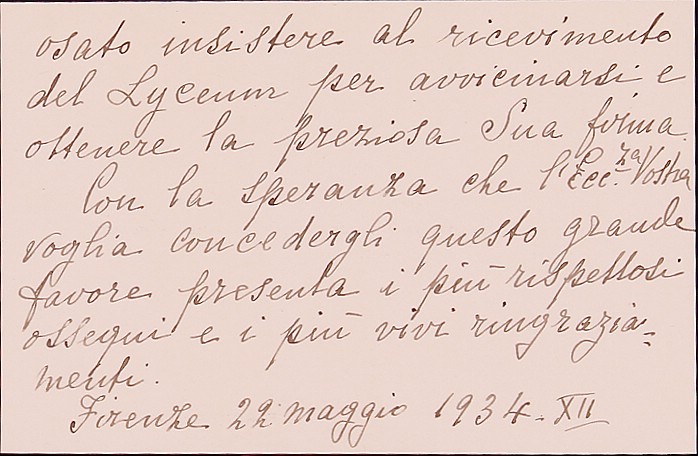 osato insistere al ricevimento
del Lyceum per avvicinarsi e
ottenere la preziosa Sua firma.
Con la speranza che l'Ecc.za Vostra
voglia concedergli questo grande
favore presenta i più rispettosi
ossequi e i più vivi ringrazia=
menti.
Firenze 22 maggio 1934-XII